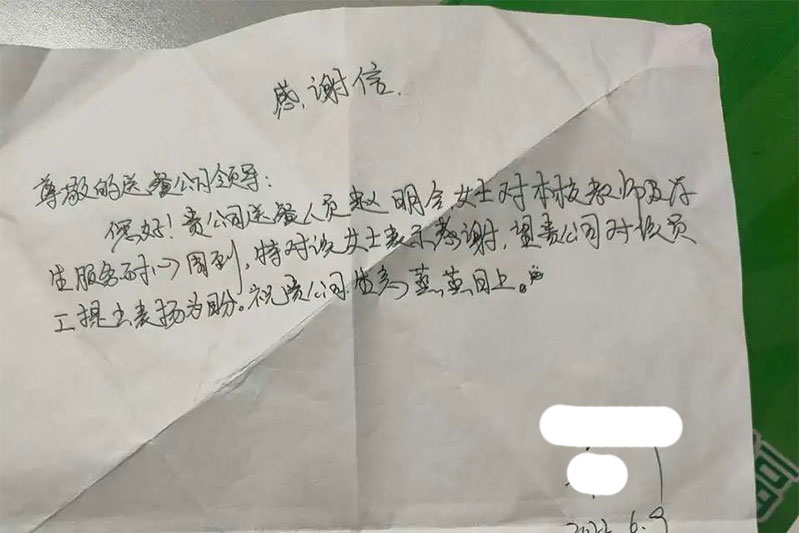 感谢信
尊敬的送餐公司领导：
您好！贵公司送餐人员赵明会女士对本校教师及学
生服务耐心周到，特对该女士表示感谢，望贵公司对该员
工提出表扬为盼。祝贵公司生意蒸蒸日上。
2022.6.9